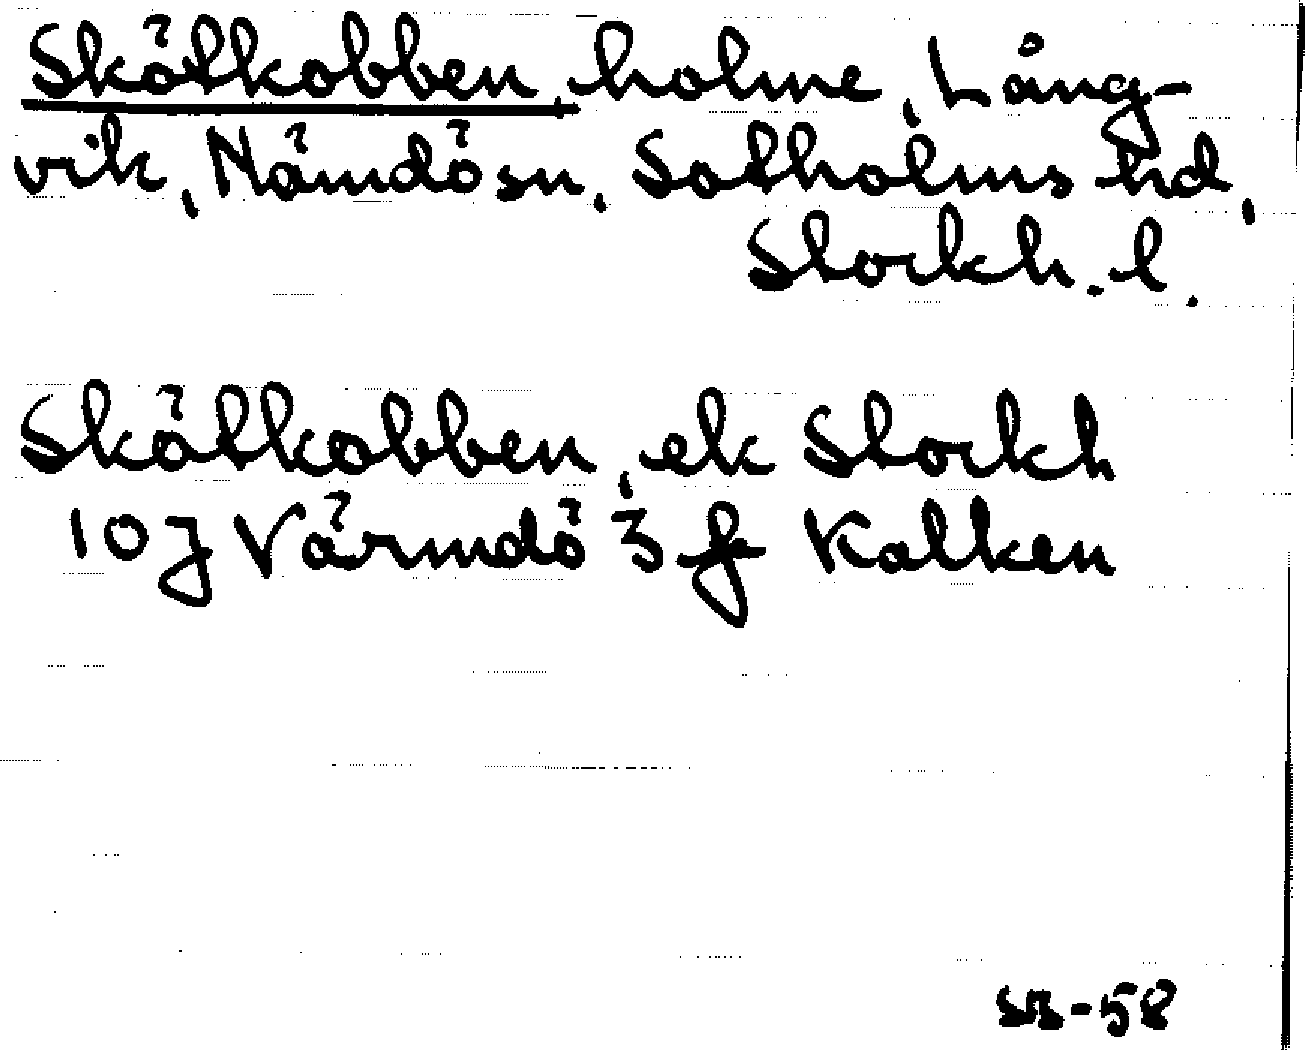 Skötkobben, holme, Lång-
vik, Nämdö sn, Sotholms hd,
Stockh. l.
Skötkobben, ek Stockh
10J Värmdö 3 f Kalken